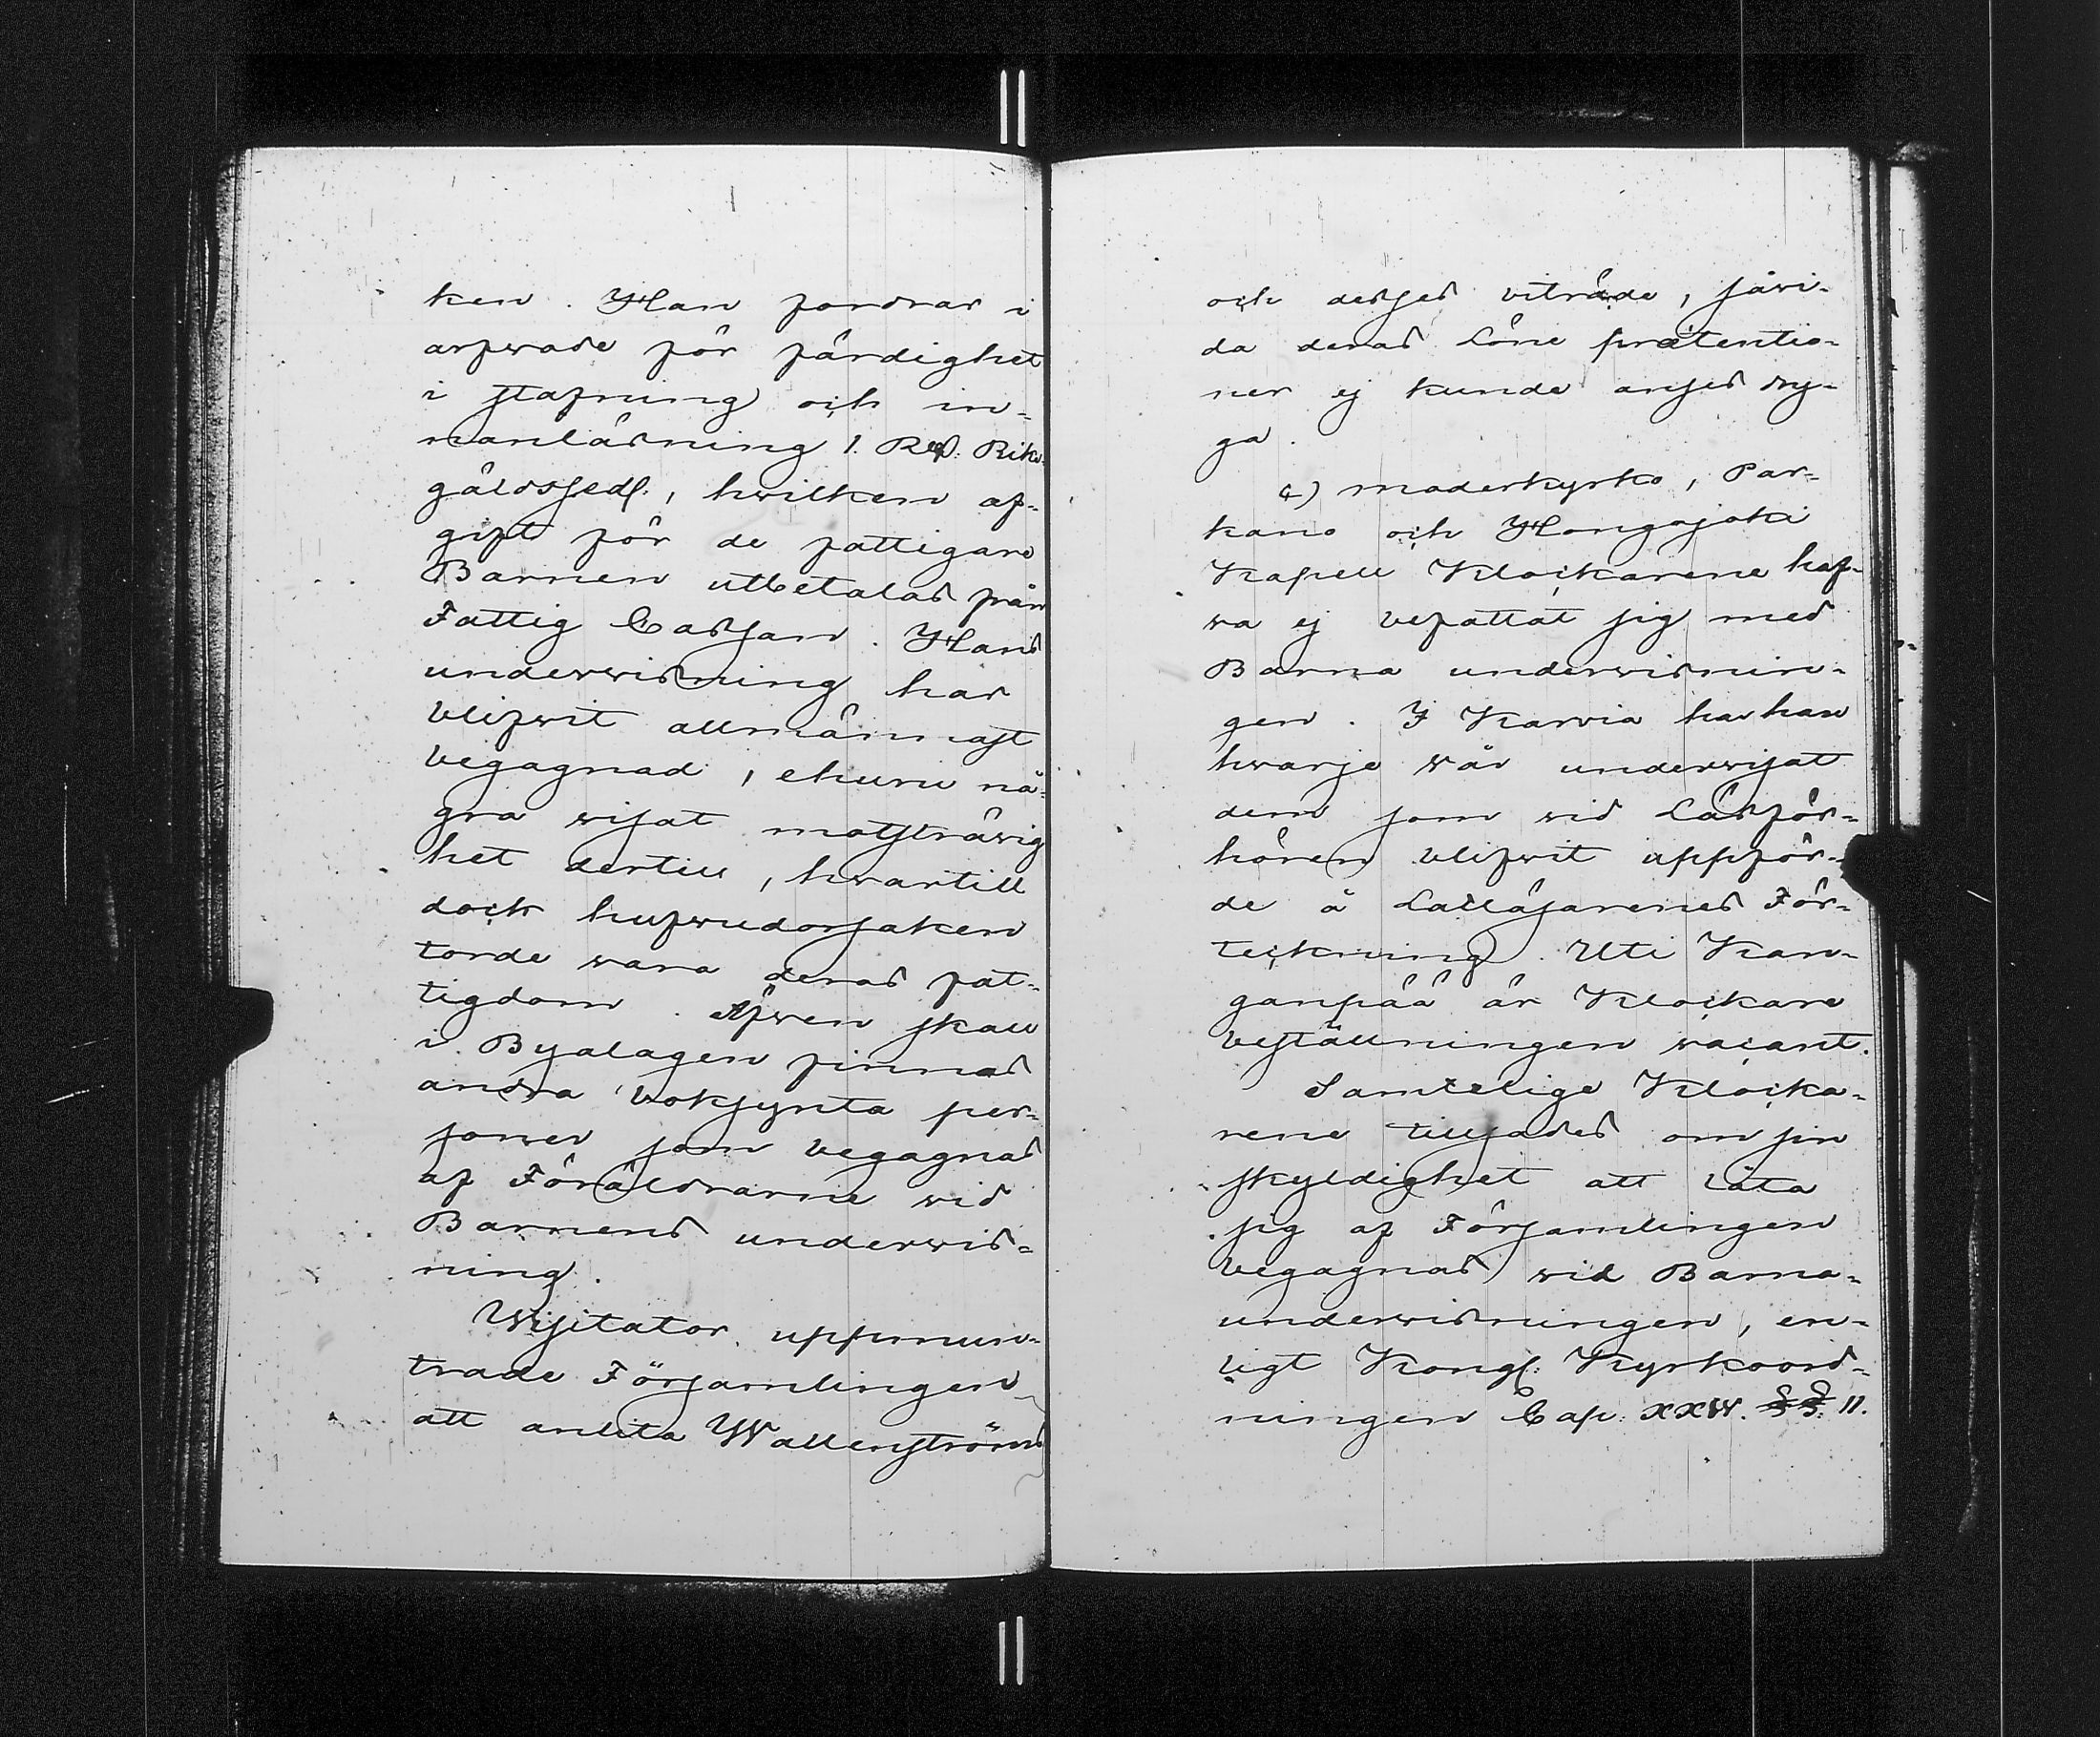 ken. Han fordrar i
arfwode för färdighet
i stafning och in-
nanläsning 1. Rd. Riks-
gäldssedl., hwilken af-
gift för de fattigare
Barnen utbetalas från
Fattig Cassan. Hans
underwisning har
blifwit allmännast
begagnad, ehuru nå-
gra wisat motsträwig
het dertill, hwartill
dock hufwudorsaken
torde wara deras fat-
tigdom. Äfwen skall
i Byalagen finnas
andra boksynta per-
soner som begagnas
af Föräldrarne wid
Barnens underwis-
ning.
Wisitator uppmun-
trade Församlingen
att anlita Wallenströms
och desses biträde, såwi-
da deras Löne prætentio-
ner ej kunde anses dry-
ga.
c) Moderkyrko, Par-
kano och Hongojoki
Kapell Klockarene haf-
wa ej befattat sig med
Barna underwisnin-
gen. I Karvia har han
hwarje wår underwisat
dem som wid Läsför-
hören blifwit uppför-
de å Lattläsarenes För-
teckning. Uti Kan-
ganpää är Klockare
beställningen vacant.
Samtelige Klocka-
rene tillsades om sin
skyldighet att låta
sig af Församlingen
begagnas wid Barna-
underwisningen, en-
ligt Kongl. Kyrkoord-
ningen Cap. XXIV. §§. 11.